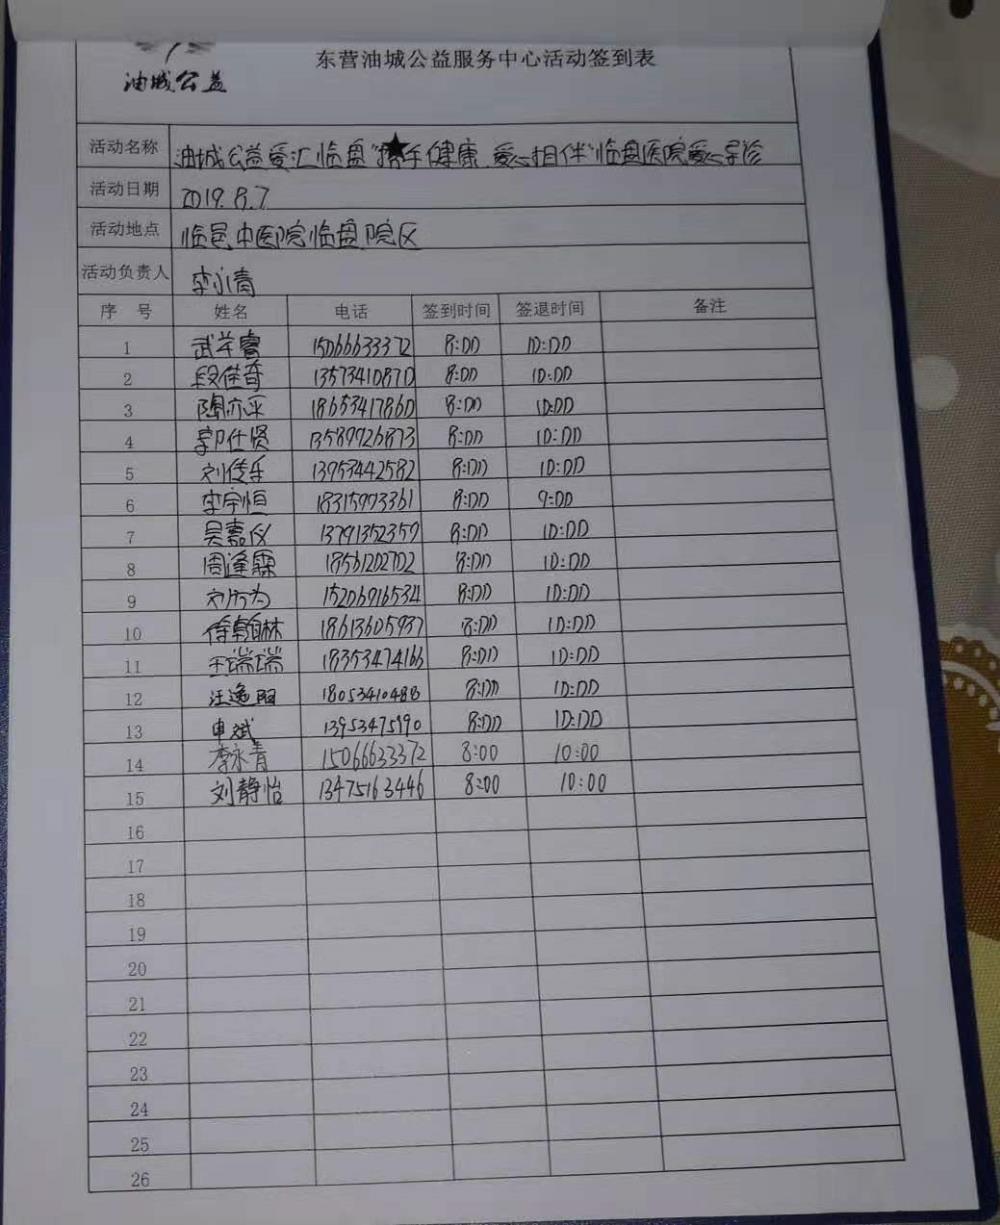 油城公益
东营油城公益服务中心活动签到表
活动名称 油城公益爱汇临盘"携手健康 爱心相伴"临盘医院爱心导诊
活动日期 2019.8.7
活动地点 临邑中医院临盘院区
活动负责人
序 号 姓名 电话 签到时间 签退时间 备注
1 武学睿 15066633372 8:00 10:00
2 段佳奇 13573410870 8:00 10:00
3 陶亦平 18653417860 8:00 10:00
4 郭仕贤 13589926873 8:00 10:00
5 刘传乐 13953442582 8:00 10:00
6 李宇恒 18315973361 8:00 9:00
7 吴嘉仪 13791352359 8:00 10:00
8 周逢霖 18561202702 8:00 10:00
9 15206916534 8:00 10:00
10 徐翰林 18613605937 8:00 10:00
11 王瑞瑞 18353474166 8:00 10:00
12 汪逸阳 8:00 10:00
13 申斌 13953475190 8:00 10:00
14 李永青 15066633372 8:00 10:00
15 刘静怡 13475163446 8:00 10:00
16
17
18
19
20
21
22
23
24
25
26